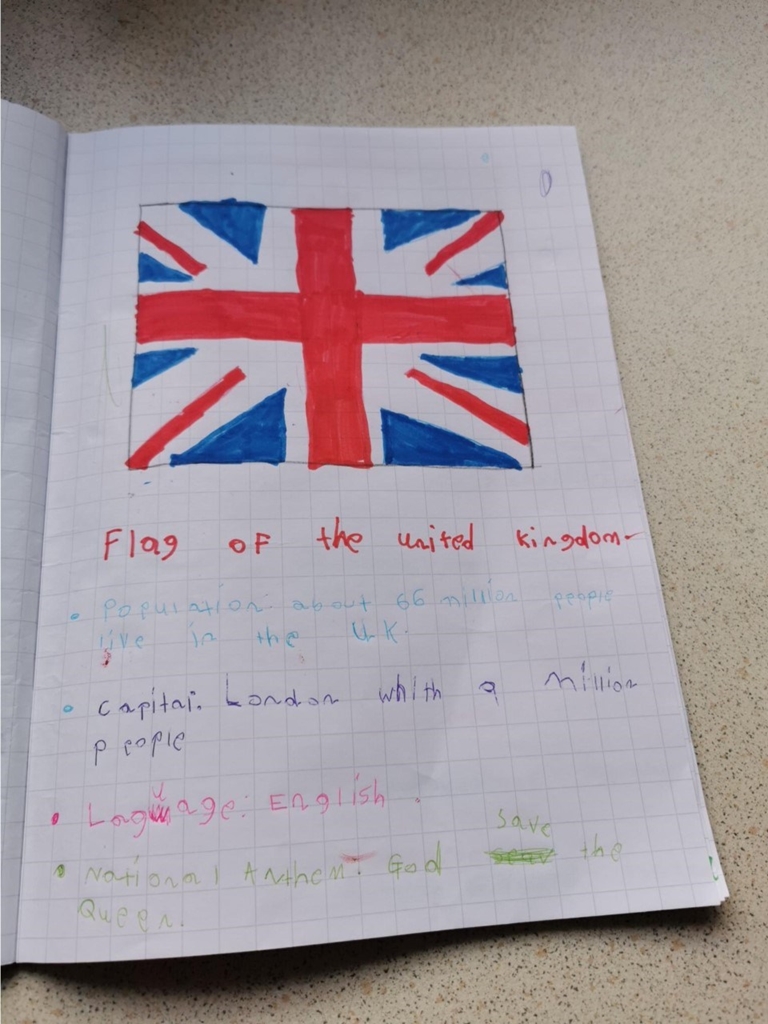 Flag of the united kingdom
• Population: about 66 million people
live in the U.K.
• Capital: London whith 9 million
people
• Laguage: English.
• National Anthem: God save the
Queen.